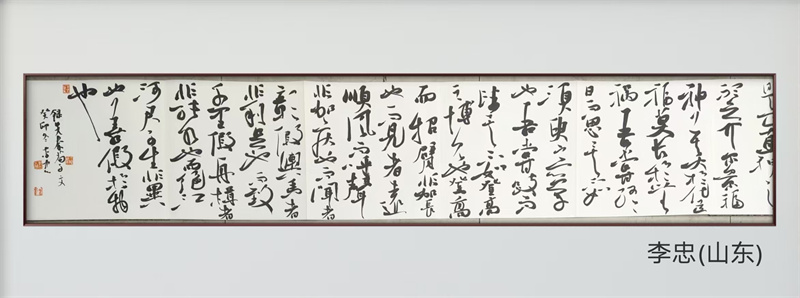 听之介尔景福
神莫大於化道
福莫长於无
祸吾尝终
日而思矣不如
须臾之所学
也吾尝跂而
望矣不如登高
之博见也登高
而招臂非加长
也而见者远
順風而呼聲
非加疾也而闻者
彰假輿馬者
非利足也而致
千里假舟楫者
非能水也而绝江
河君子生非異
也善假於物
也
癸卯冬李忠
李忠(山东)